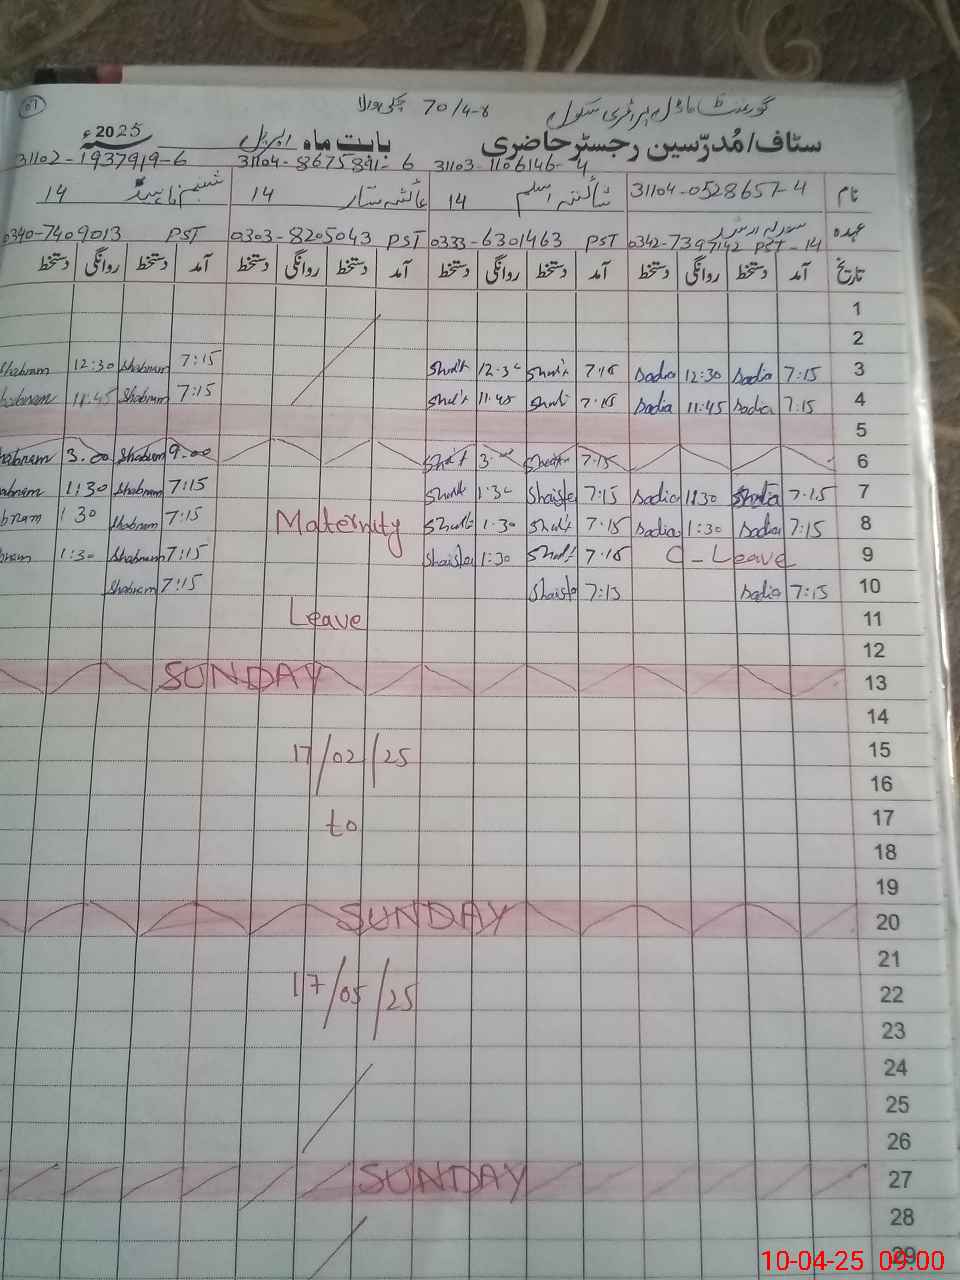 01
گورنمنٹ ماڈل پرائمری سکول 70/4-R چکی والا
سٹاف/مُدرّسین رجسٹر حاضری بابت ماہ اپریل سنہ 2025ء
31103-1106146-4 31104-8675891-6 31102-1937919-6
نام 31104-0528657-4 شائستہ اسلم 14 عائشہ ستار 14 شبنم ناہید 14
عہدہ 0342-7397142 PST-14 0333-6301463 PST 0303-8205043 PST 0340-7409013 PST
تاریخ آمد دستخط روانگی دستخط آمد دستخط روانگی دستخط آمد دستخط روانگی دستخط آمد دستخط روانگی دستخط
1
2
Shabnam 12:30 Shabnam 7:15 12:30 7:15 Sadia 12:30 Sadia 7:15 3
Shabnam 11:45 Shabnam 7:15 11:45 7:15 Sadia 11:45 Sadia 7:15 4
5
Shabnam 3.00 Shabnam 9.00 3.00 7:15 6
Shabnam 1:30 Shabnam 7:15 1:30 Shaista 7:15 Sadia 1:30 7:15 7
1:30 Shabnam 7:15 Maternity 1:30 7:15 Sadia 1:30 Sadia 7:15 8
1:30 Shabnam 7:15 Shaista 1:30 7:15 C-Leave 9
Shabnam 7:15 Shaista 7:15 Sadia 7:15 10
Leave 11
12
SUNDAY 13
14
17/02/25 15
16
to 17
18
19
SUNDAY 20
21
17/05/25 22
23
24
25
26
SUNDAY 27
28
29
10-04-25 09:00